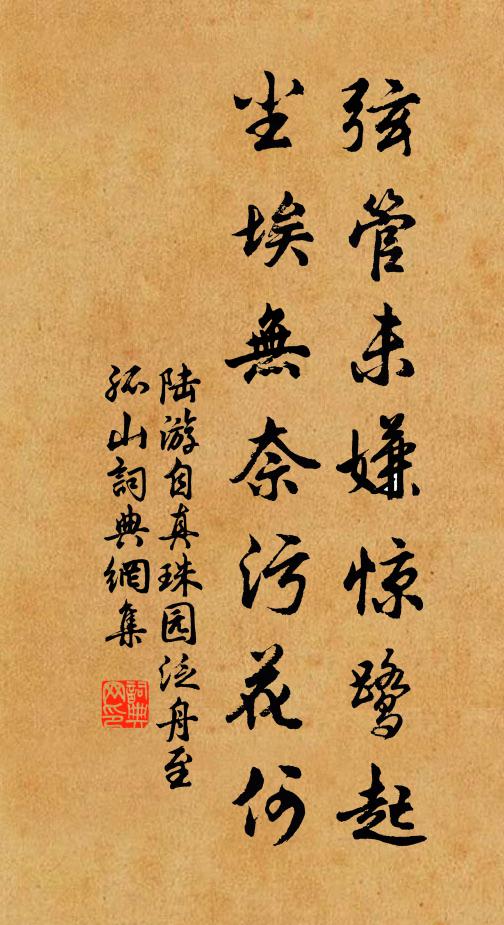 弦管未嫌惊鹭起
尘埃無奈污花何
陆游自真珠园泛舟至
孤山詞典網集
詞典网印